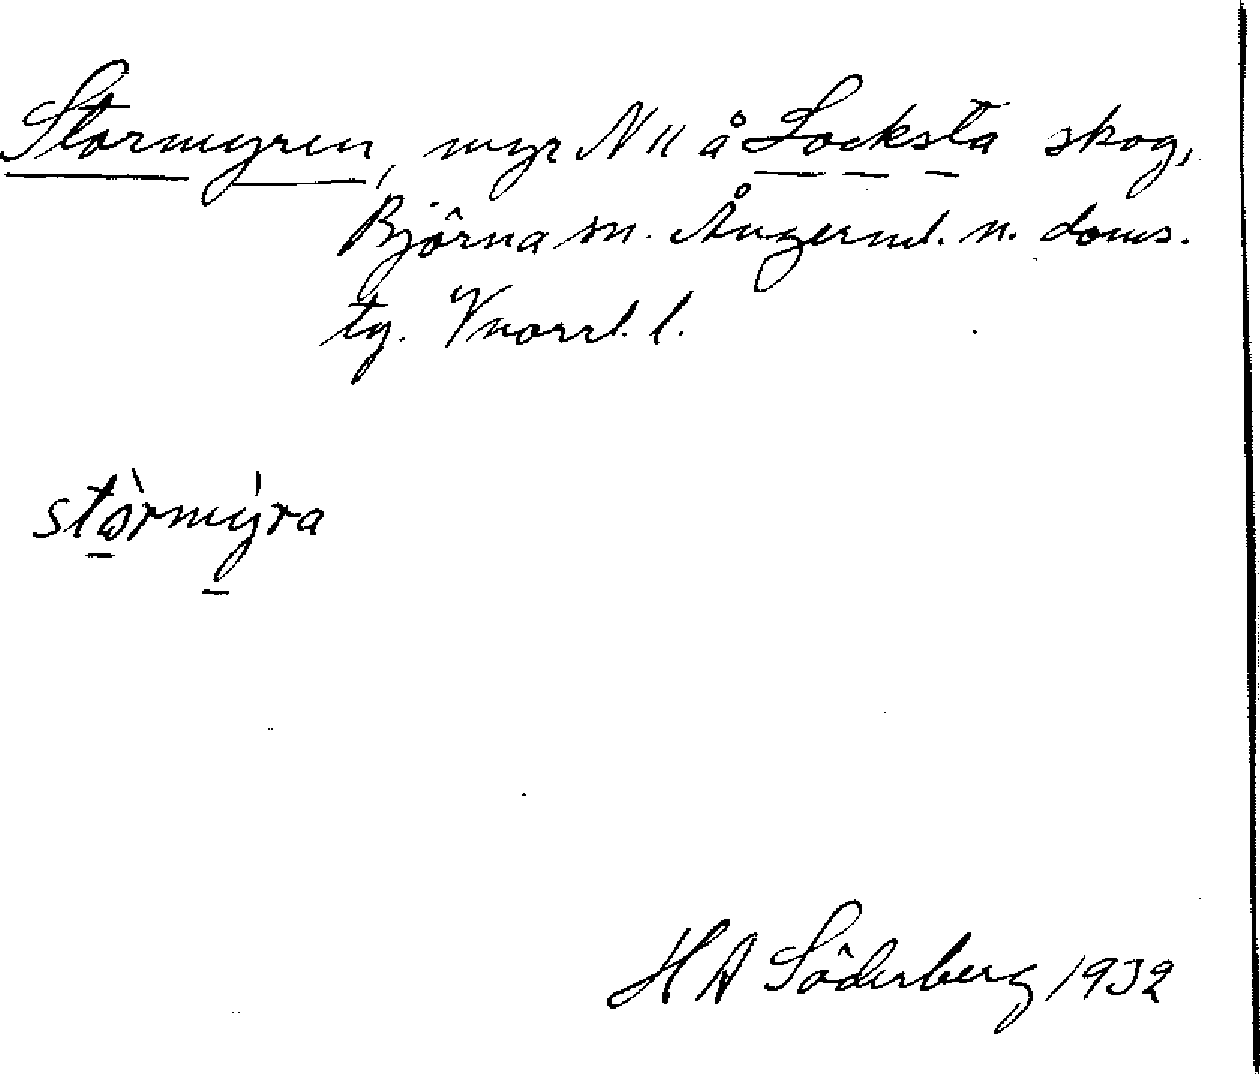 Stormyren, myr N 11 å Locksta skog,
Björna sn. Ångerml. n. doms.
tg. Vnorrl. l.
stòrmýra
H A Söderberg 1932